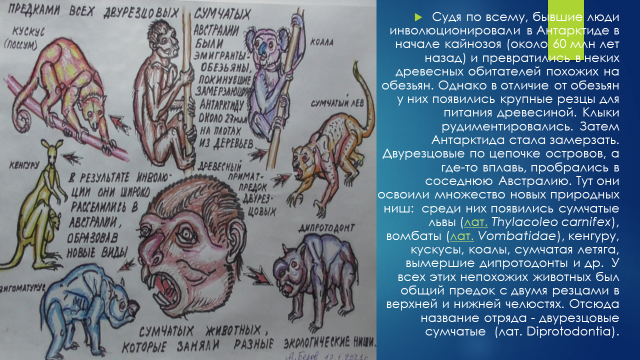 ПРЕДКАМИ ВСЕХ ДВУРЕЗЦОВЫХ СУМЧАТЫХ
КУСКУС
(ПОССУМ)
АВСТРАЛИИ
БЫЛИ
ЭМИГРАНТЫ-
ОБЕЗЬЯНЫ,
ПОКИНУВШИЕ
ЗАМЕРЗАЮЩУЮ
АНТАРКТИДУ
ОКОЛО 23 млн
НА ПЛОТАХ
ИЗ ДЕРЕВЬЕВ
КОАЛА
СУМЧАТЫЙ ЛЕВ
КЕНГУРУ
В РЕЗУЛЬТАТЕ ИНВОЛЮ-
ЦИИ ОНИ ШИРОКО
РАССЕЛИЛИСЬ В
АВСТРАЛИИ,
ОБРАЗОВАВ
НОВЫЕ ВИДЫ
ДРЕВЕСНЫЙ
ПРИМАТ-
ПРЕДОК
ДВУРЕЗ-
ЦОВЫХ
ДИПРОТОДОНТ
ЗИГОМАТУРУС
СУМЧАТЫХ ЖИВОТНЫХ,
КОТОРЫЕ ЗАНЯЛИ РАЗНЫЕ ЭКОЛОГИЧЕСКИЕ НИШИ.
А. Белов
Судя по всему, бывшие люди
инволюционировали в Антарктиде в
начале кайнозоя (около 60 млн лет
назад) и превратились в неких
древесных обитателей похожих на
обезьян. Однако в отличие от обезьян
у них появились крупные резцы для
питания древесиной. Клыки
рудиментировались. Затем
Антарктида стала замерзать.
Двурезцовые по цепочке островов, а
где-то вплавь, пробрались в
соседнюю Австралию. Тут они
освоили множество новых природных
ниш: среди них появились сумчатые
львы (лат. Thylacoleo carnifex),
вомбаты (лат. Vombatidae), кенгуру,
кускусы, коалы, сумчатая летяга,
вымершие дипротодонты и др. У
всех этих непохожих животных был
общий предок с двумя резцами в
верхней и нижней челюстях. Отсюда
название отряда - двурезцовые
сумчатые (лат. Diprotodontia).